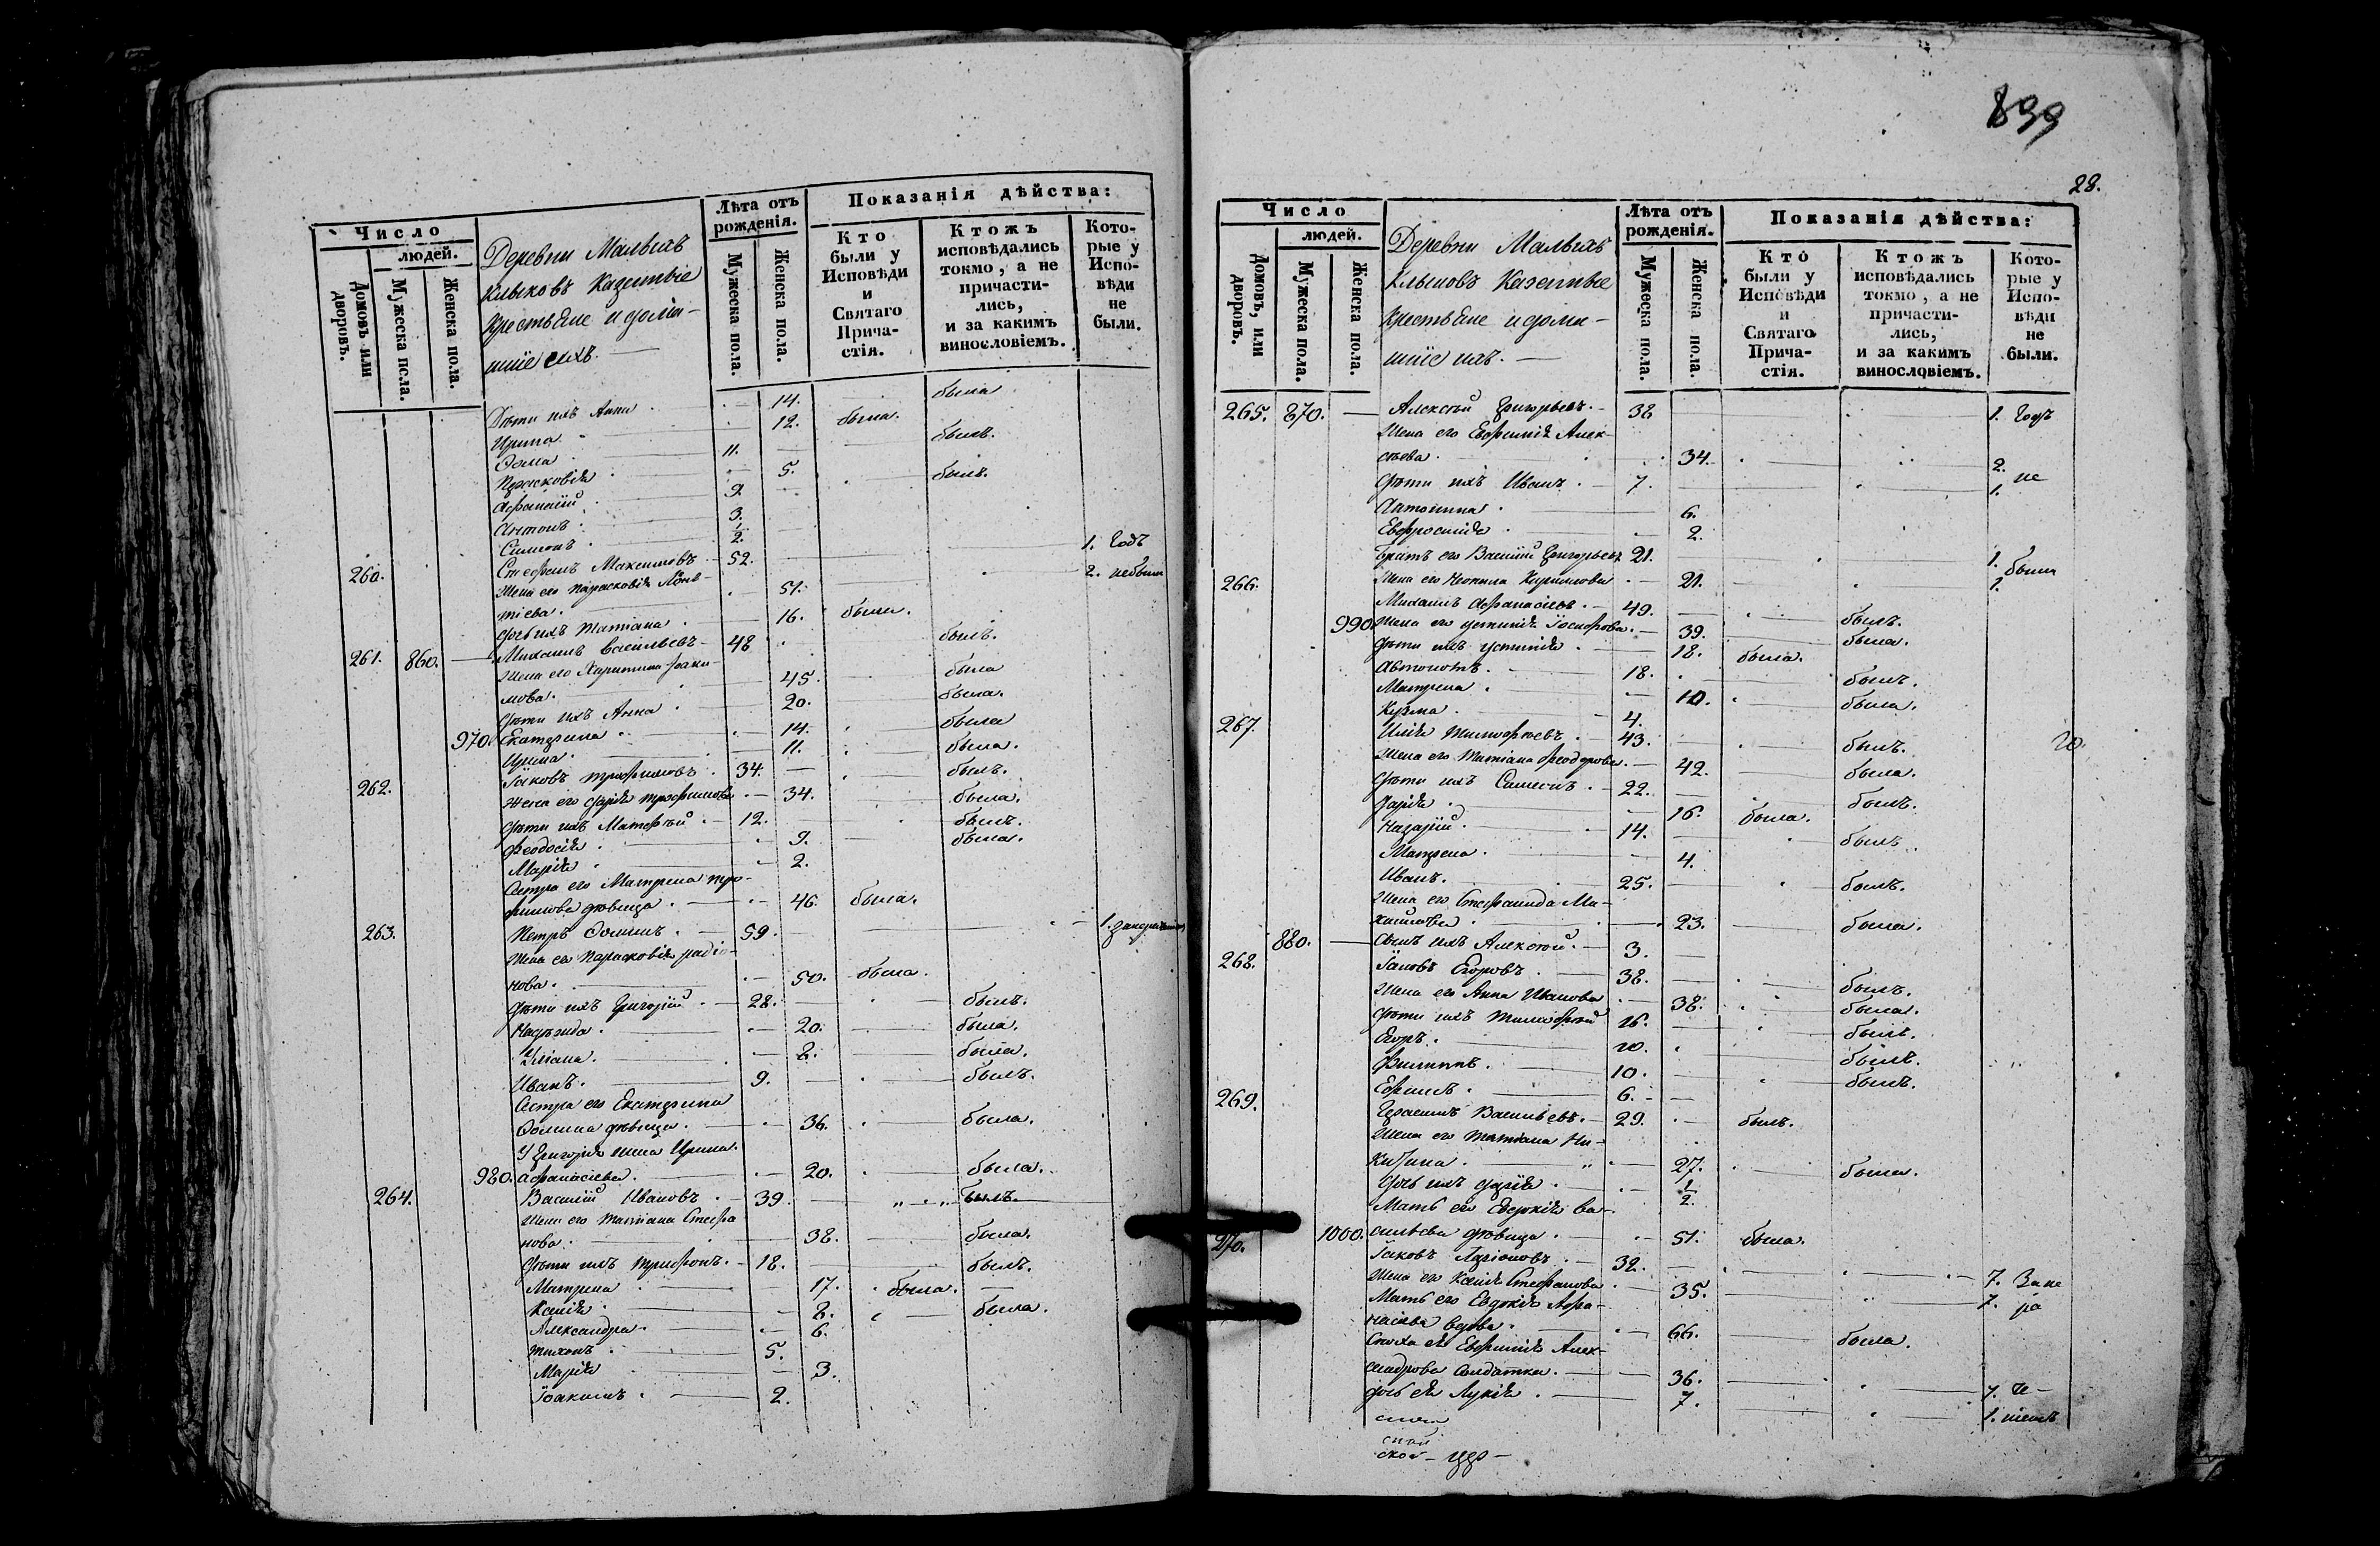 Число
людей.
Домовъ или дворовъ.
Мужеска пола.
Женска пола.
Деревни Малыхъ
Клыковъ Казенные
Крестьяне и дома-
шніе ихъ.
Лѣта отъ рожденія.
Мужеска пола.
Женска пола.
Показанія дѣйства:
Кто были у Исповѣди и Святаго Прича-стія.
Ктожъ исповѣдались токмо, а не причасти-лись, и за какимъ винословіемъ.
Кото-рые у Испо-вѣди не были.
Дѣти ихъ Анна 14. была
Ирина 12. была.
Ѳома 11. былъ.
Парасковія 5.
Афанасій 9. былъ.
Антонъ 3.
Симонъ
260. Стефанъ Максимовъ 52. 1. Годъ
Жена его Парасковія
тіева. 51. 2. небыли
Дочь ихъ Татіана 16. была.
261. 860. Михаилъ Васильевъ 48 былъ.
Жена его Харитина
мова. 45. была
Дѣти ихъ Анна 20. была.
970. Екатерина 14. была
Ирина 11. была.
262. Іаковъ Трофимовъ 34. былъ.
Жена его Дарія Трофимова 34. была.
Дѣти ихъ Матѳей 12. былъ.
Феодосія 9. была.
Марія 2.
Сестра его Матрена Тро-
фимова дѣвица. 46. была.
263. Петръ Ѳоминъ 59. 1.
Жена его Парасковія Радіо-
нова. 50. была.
Дѣти ихъ Григорій 28. былъ.
Надежда. 20. была.
Уліана. была.
Иванъ. 9. былъ.
Сестра его Екатерина
Ѳомина дѣвица. 36. была.
У Григорія жена Ирина
980. Афанасіева. 20. была.
264. Василій Ивановъ 39. былъ.
Жена его Татіана Стефа
нова. 38. была.
Дѣти ихъ Трифонъ. 18. былъ.
Матрена 17. была.
Ксенія была.
Александра. 6.
Тихонъ 5.
Марія 3.
Іоакимъ 2.
899
28.
Число
людей.
Домовъ, или дворовъ.
Мужеска пола.
Женска пола.
Деревни Малыхъ
Клыковъ Казенные
Крестьяне и дома-
шніе ихъ.
Лѣта отъ рожденія.
Мужеска пола.
Женска пола.
Показанія дѣйства:
Кто были у Исповѣди и Святаго Прича-стія.
Ктожъ исповѣдались токмо, а не причасти-лись, и за какимъ винословіемъ.
Кото-рые у Испо-вѣди не были.
265. 870. Алексѣй Григорьевъ. 38 1. Годъ
Жена его Евфимія Алек-
сѣева. 34. 2.
Дѣти ихъ Иванъ. 7. 1. не
Антонина 6.
Евфросинія 2.
Братъ его Василій Григорьевъ 21. 1. были
Жена его Неонила Кириллова 21. 2.
266. Михаилъ Афанасіевъ 49. былъ.
990. Жена его Устинія Іосифова. 39. была.
Дѣти ихъ Устинія 18. была.
Автономъ. 18. былъ.
Матрена 10. была.
Кузма. 4.
267. Илія Тимофеевъ 43. былъ. 20.
Жена его Татіана Феодорова. 42. была.
Дѣти ихъ Симеонъ. 22. былъ.
Дарія 16. была.
Назарій. 14. былъ.
Матрена. 4.
Иванъ. 25. былъ.
Жена его Стефанида Ми-
хаилова 23. была.
880. Сынъ ихъ Алексѣй. 3.
268. Іаковъ Егоровъ 38. былъ.
Жена его Анна Иванова 38. была.
Дѣти ихъ Тимофей 16. былъ.
Егоръ. 10. былъ.
Филиппъ. 10. былъ.
Ефимъ. 6.
269. Герасимъ Васильевъ. 29. былъ.
Жена его Татіана Ни-
китина. 27. была.
Дочь ихъ Дарія 1/2
Мать его Евдокія Ва-
1000. сильева дѣвица 51. была.
270. Іаковъ Ларіоновъ 32. 7. За не
Жена его Ксенія Стефанова 35. 7. ра
Мать его Евдокія Афа-
насіева вдова. 66. была.
Сноха ея Евфимія Алек-
сандрова Солдатка. 36. 7. че-
Дочь ея Лукія 7. 1. ніемъ